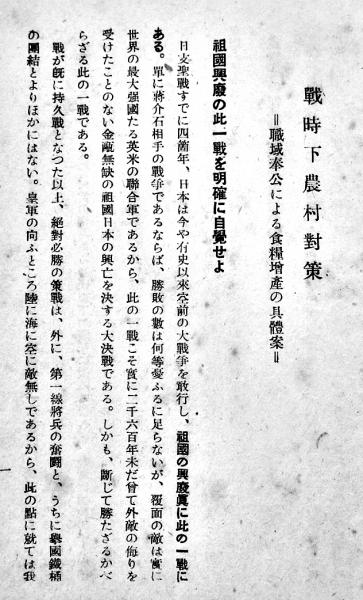 戰時下農村對策
＝職域奉公による食糧增產の具體案＝
祖國興廢の此一戰を明確に自覺せよ
日支聖戰すでに四箇年、日本は今や有史以來空前の大戰爭を敢行し、祖國の興廢眞に此の一戰に
ある。單に蔣介石相手の戰爭であるならば、勝敗の數は何等憂ふるに足らないが、覆面の敵は實に
世界の最大强國たる英米の聯合軍であるから、此の一戰こそ實に二千六百年未だ曾て外敵の侮りを
受けたことのない金甌無缺の祖國日本の興亡を決する大決戰である。しかも、斷じて勝たざるべか
らざる此の一戰である。
戰が既に持久戰となつた以上、絕對必勝の策戰は、外に、第一線將兵の奮鬪と、うちに擧國鐵桶
の團結とよりほかにはない。皇軍の向ふところ陸に海に空に敵無しであるから、此の點に就ては我